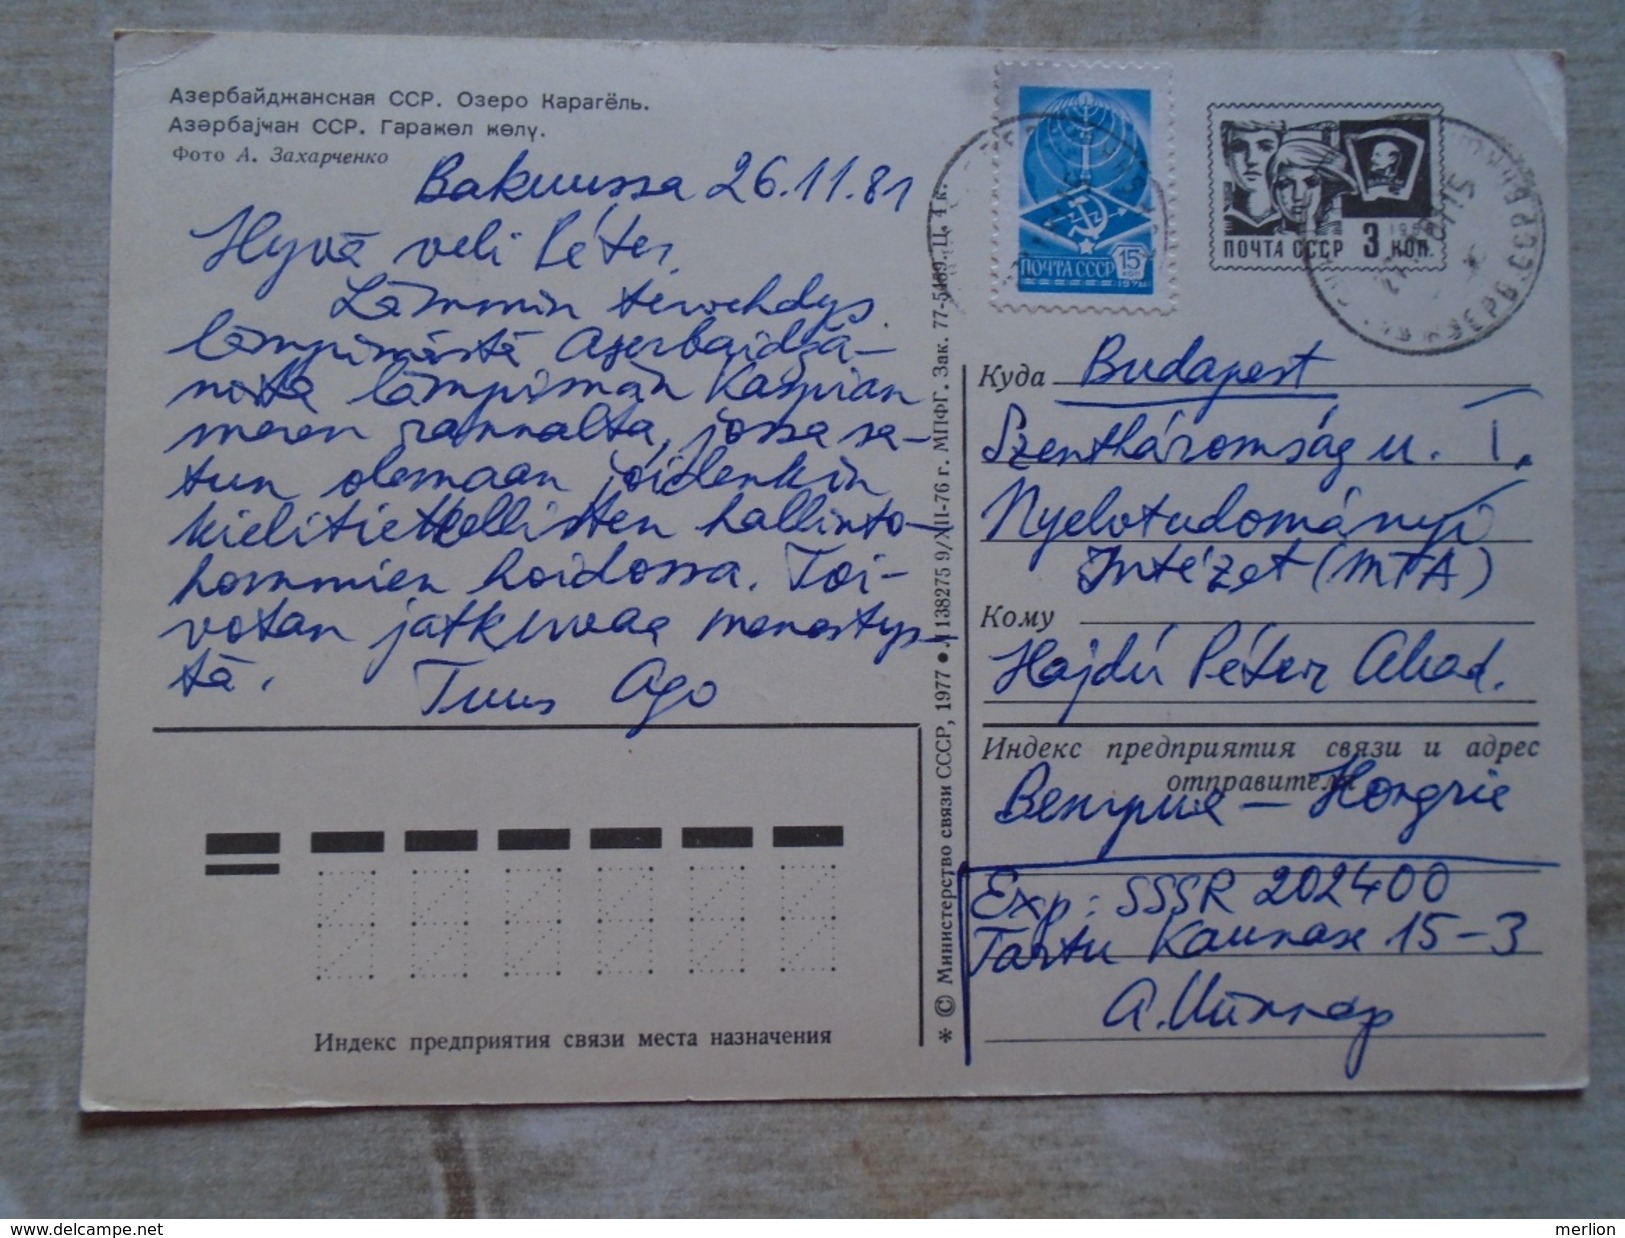 Азербайджанская ССР. Озеро Карагёль.
Азәрбајҹан ССР. Гаракөл көлү.
Фото А. Захарченко
Bakuussa 26.11.81
Hyvä veli Péter,
Lämmin tervehdys
lämpimästä Azerbaidžä-
nistä lämpimän Kaspian
meren rannalta, jossa sa-
tun olemaan joidenkin
kielitieteellisten hallinto-
hommien hoidossa. Toi-
votan jatkuvaa menesty s-
tä. Tuus Ago
ПОЧТА СССР 15 коп
1976
ПОЧТА СССР 3 коп.
Куда Budapest
Szentháromság u. I.
Nyelvtudományi
Intézet (MTA)
Кому
Hajdú Péter Akad.
Индекс предприятия связи и адрес
отправителя
Венгрия – Hongrie
Exp: SSSR 202400
Tartu Kaunase 15-3
А. Кюннап
Индекс предприятия связи места назначения
* © Министерство связи СССР, 1977 • Л 138275 9/XII-76 г. МПФГ. Зак. 77-5489. Ц. 4 к.
merlion
www.delcampe.net